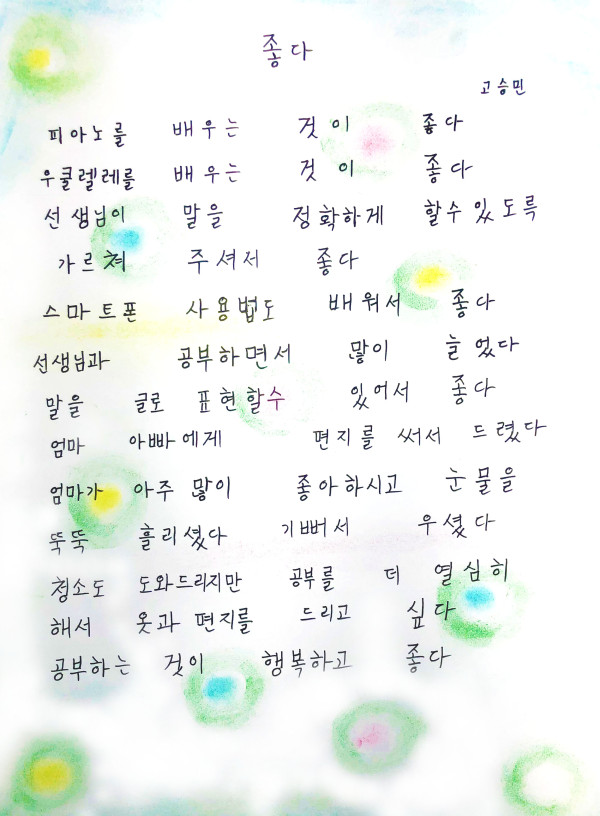 좋다
고승민
피아노를 배우는 것이 좋다
우쿨렐레를 배우는 것이 좋다
선생님이 말을 정확하게 할수있도록
가르쳐 주셔서 좋다
스마트폰 사용법도 배워서 좋다
선생님과 공부하면서 많이 늘었다
말을 글로 표현할수 있어서 좋다
엄마 아빠에게 편지를 써서 드렸다
엄마가 아주 많이 좋아하시고 눈물을
뚝뚝 흘리셨다 기뻐서 우셨다
청소도 도와드리지만 공부를 더 열심히
해서 옷과 편지를 드리고 싶다
공부하는 것이 행복하고 좋다